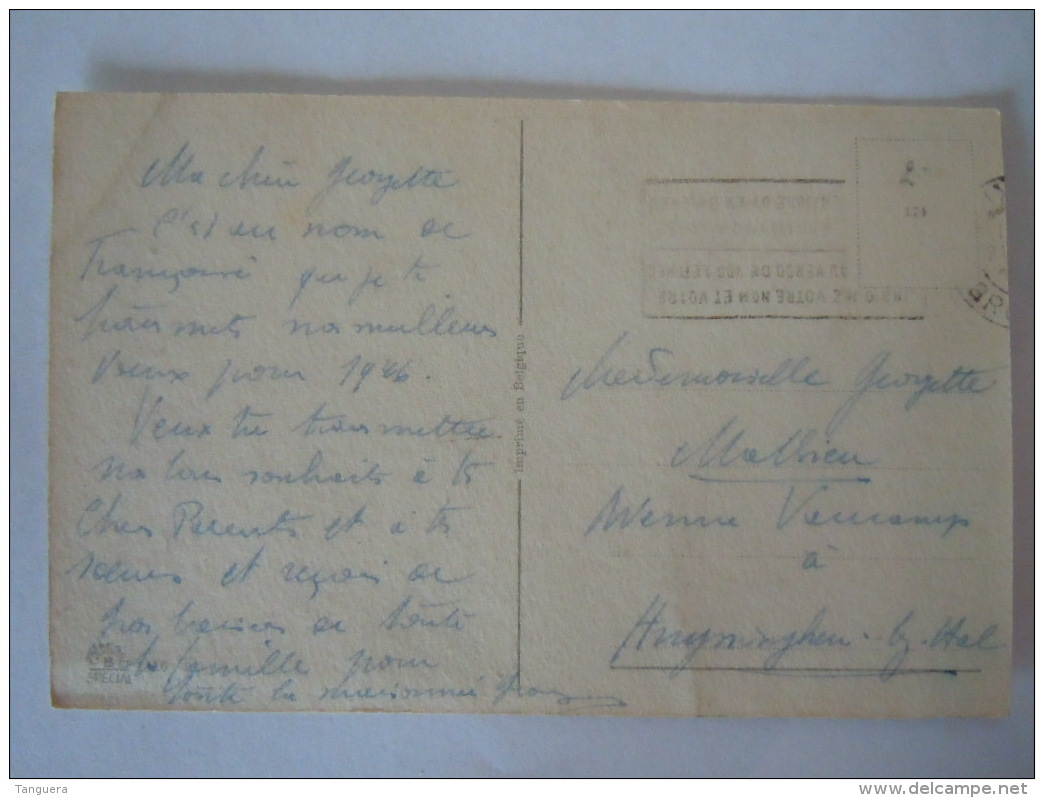 Ma chère Georgette
C'est au nom de
Françoise que je te
transmets nos meilleurs
Vœux pour 1946.
Veux tu transmettre
nos bons souhaits à tes
Chers Parents et à tes
sœurs et reçois de
gros baisers de toute
la famille pour
toute la maisonnée
SPECIAL
Imprimé en Belgique
INDIQUEZ VOTRE NOM ET VOTRE
AU VERSO DE VOS LETTRES
BR
2-
Mademoiselle Georgette
Mathieu
Avenue Vaucamps
à
Huyzinghen-by-Hal
Tanguera
delcampe.net